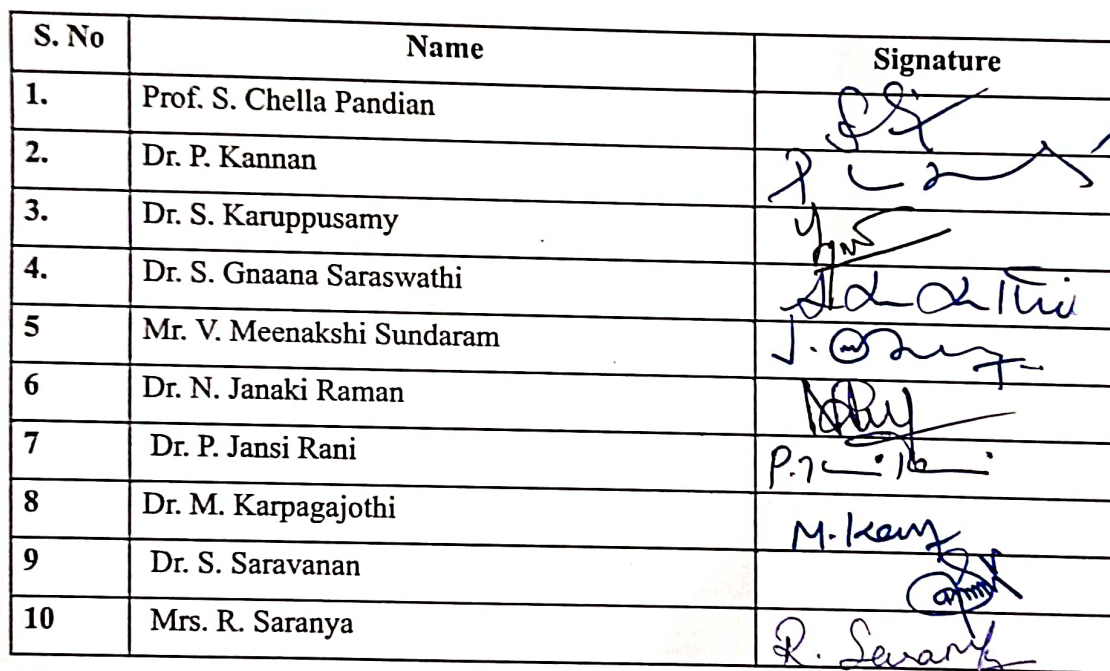 S. No Name Signature
1. Prof. S. Chella Pandian
2. Dr. P. Kannan
3. Dr. S. Karuppusamy
4. Dr. S. Gnaana Saraswathi
5 Mr. V. Meenakshi Sundaram
6 Dr. N. Janaki Raman
7 Dr. P. Jansi Rani
8 Dr. M. Karpagajothi
9 Dr. S. Saravanan
10 Mrs. R. Saranya